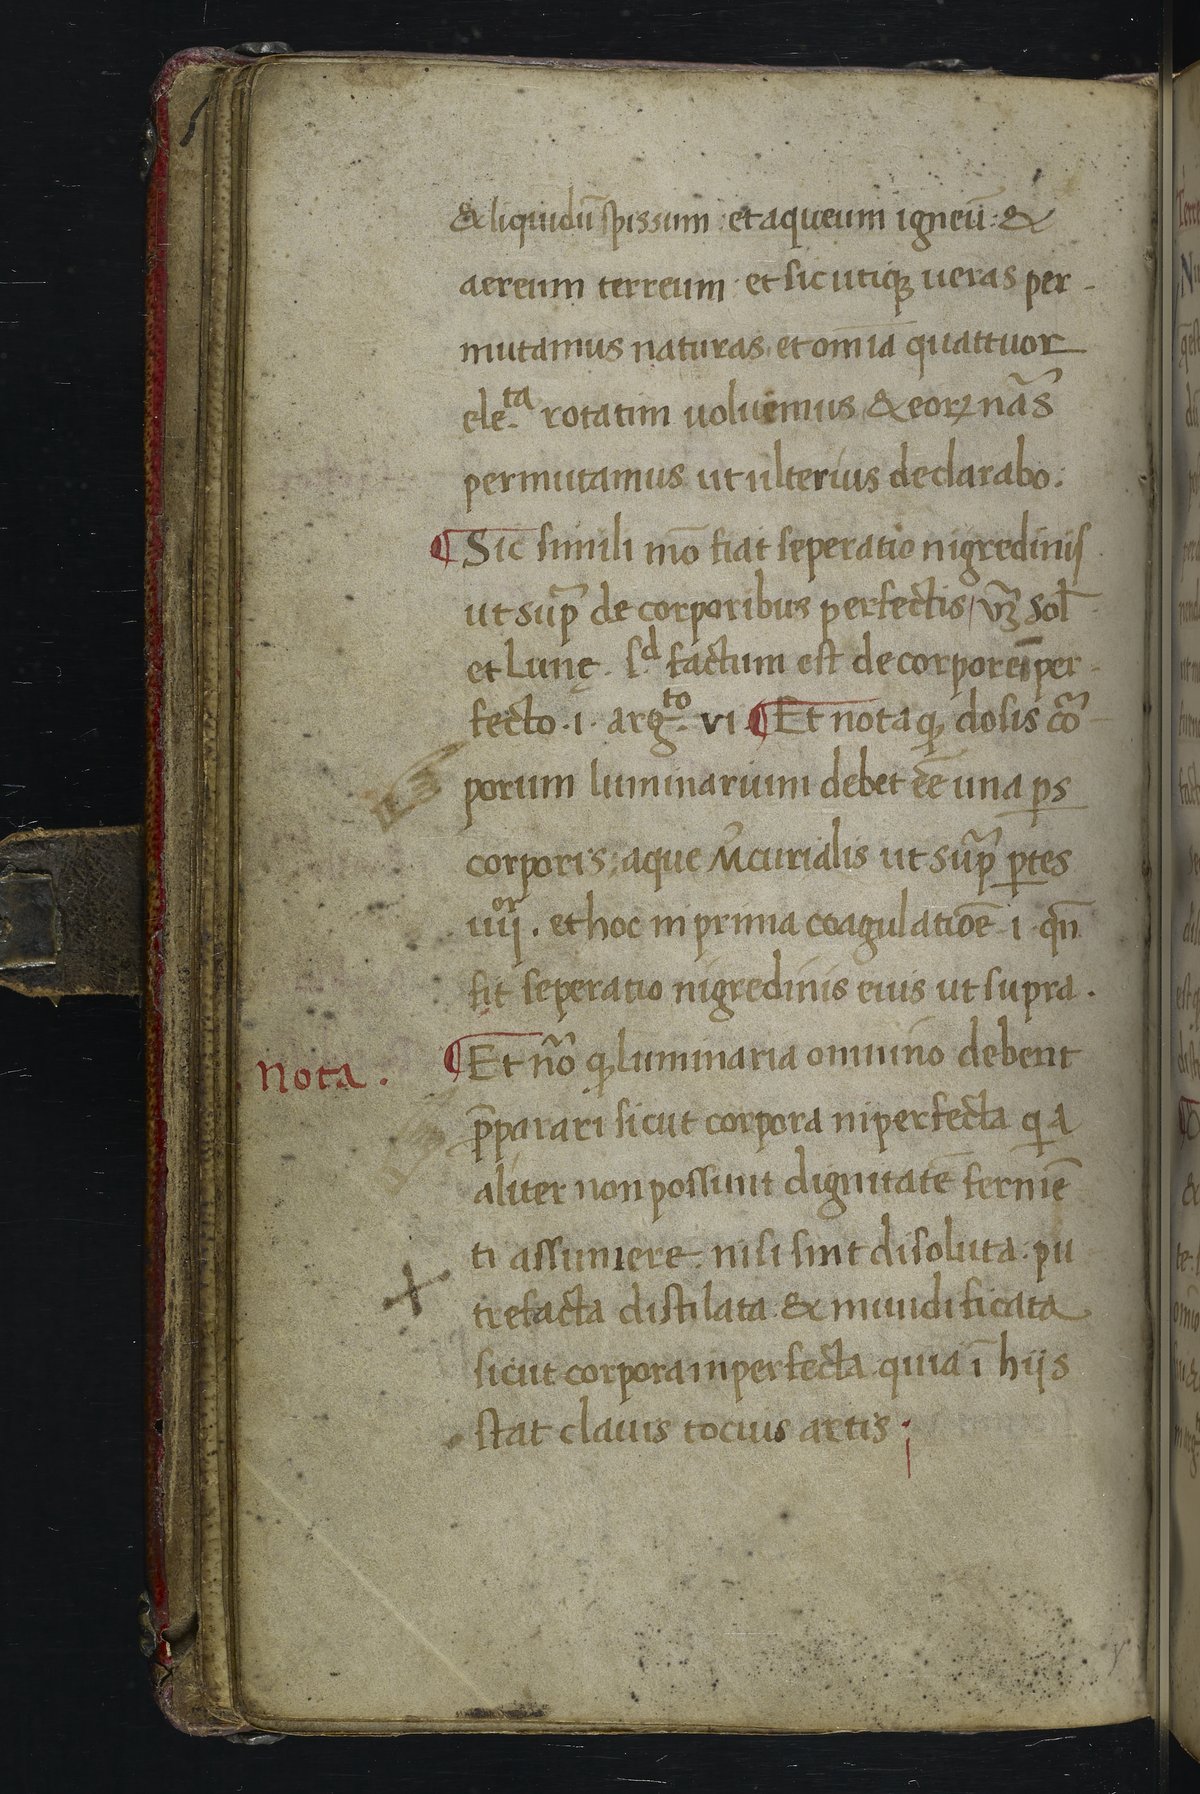 & liquidū spissum · et aqueum igneū · &
aereum terreum · et sic utiqꝫ ueras per-
mutamus naturas, et om̄ia quattuor
ele.ᵗᵃ rotatim uoluemus & eoꝝ nāS
permutamus ut ulterius declarabo:
¶ Sic simili mō fiat seperatio nigredinis
ut sup̄ de corporibus perfectis / vꝫ Sol̄
et Lunę. sᵈ factum est de corpore īper-
fecto · i · argᵗᵒ · vi ¶ Et nota qꝫ dosis cōr-
porum luminarium debet ēē una ꝑs
corporis, aque M̄curialis ut sup̄ ꝑtes
iiijᵒʳ. et hoc in prima coagulatiōē · i · qn̄
fit seperatio nigredinis eius ut supra.
Nota.
¶ Et nō qꝫ luminaria omnino debent
p̄parari sicut corpora inperfecta qꝫa
aliter non possunt dignitatē fermē
ti assumere · nisi sint disoluta · pu
trefacta distilata & mundificata
sicut corpora inperfecta quia ī hijs
stat clauis tocius artis ;